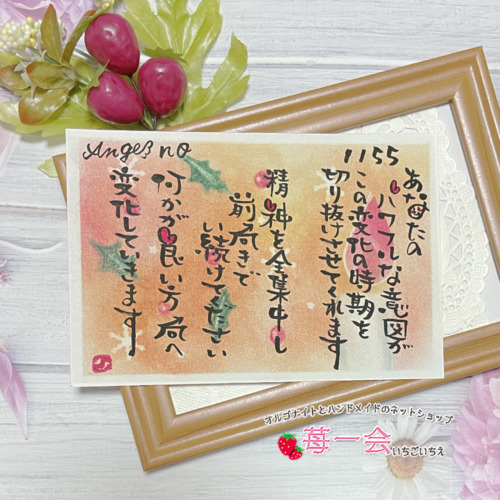 Angel no
1155
あなたの
パワフルな意図が
この変化の時期を
切り抜けさせてくれます
精神を全集中し
前向きで
い続けてください
何かが良い方向へ
変化していきます
オルゴナイトとハンドメイドのネットショップ
苺一会 いちごいちえ